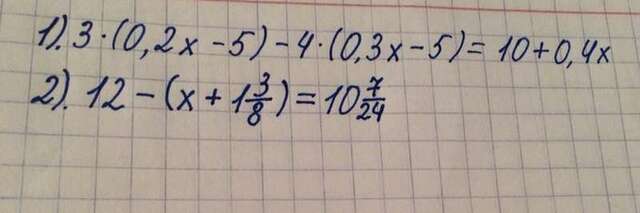 1). 3·(0,2x-5)-4·(0,3x-5)=10+0,4x
2). 12-(x+1 3/8)=10 7/24